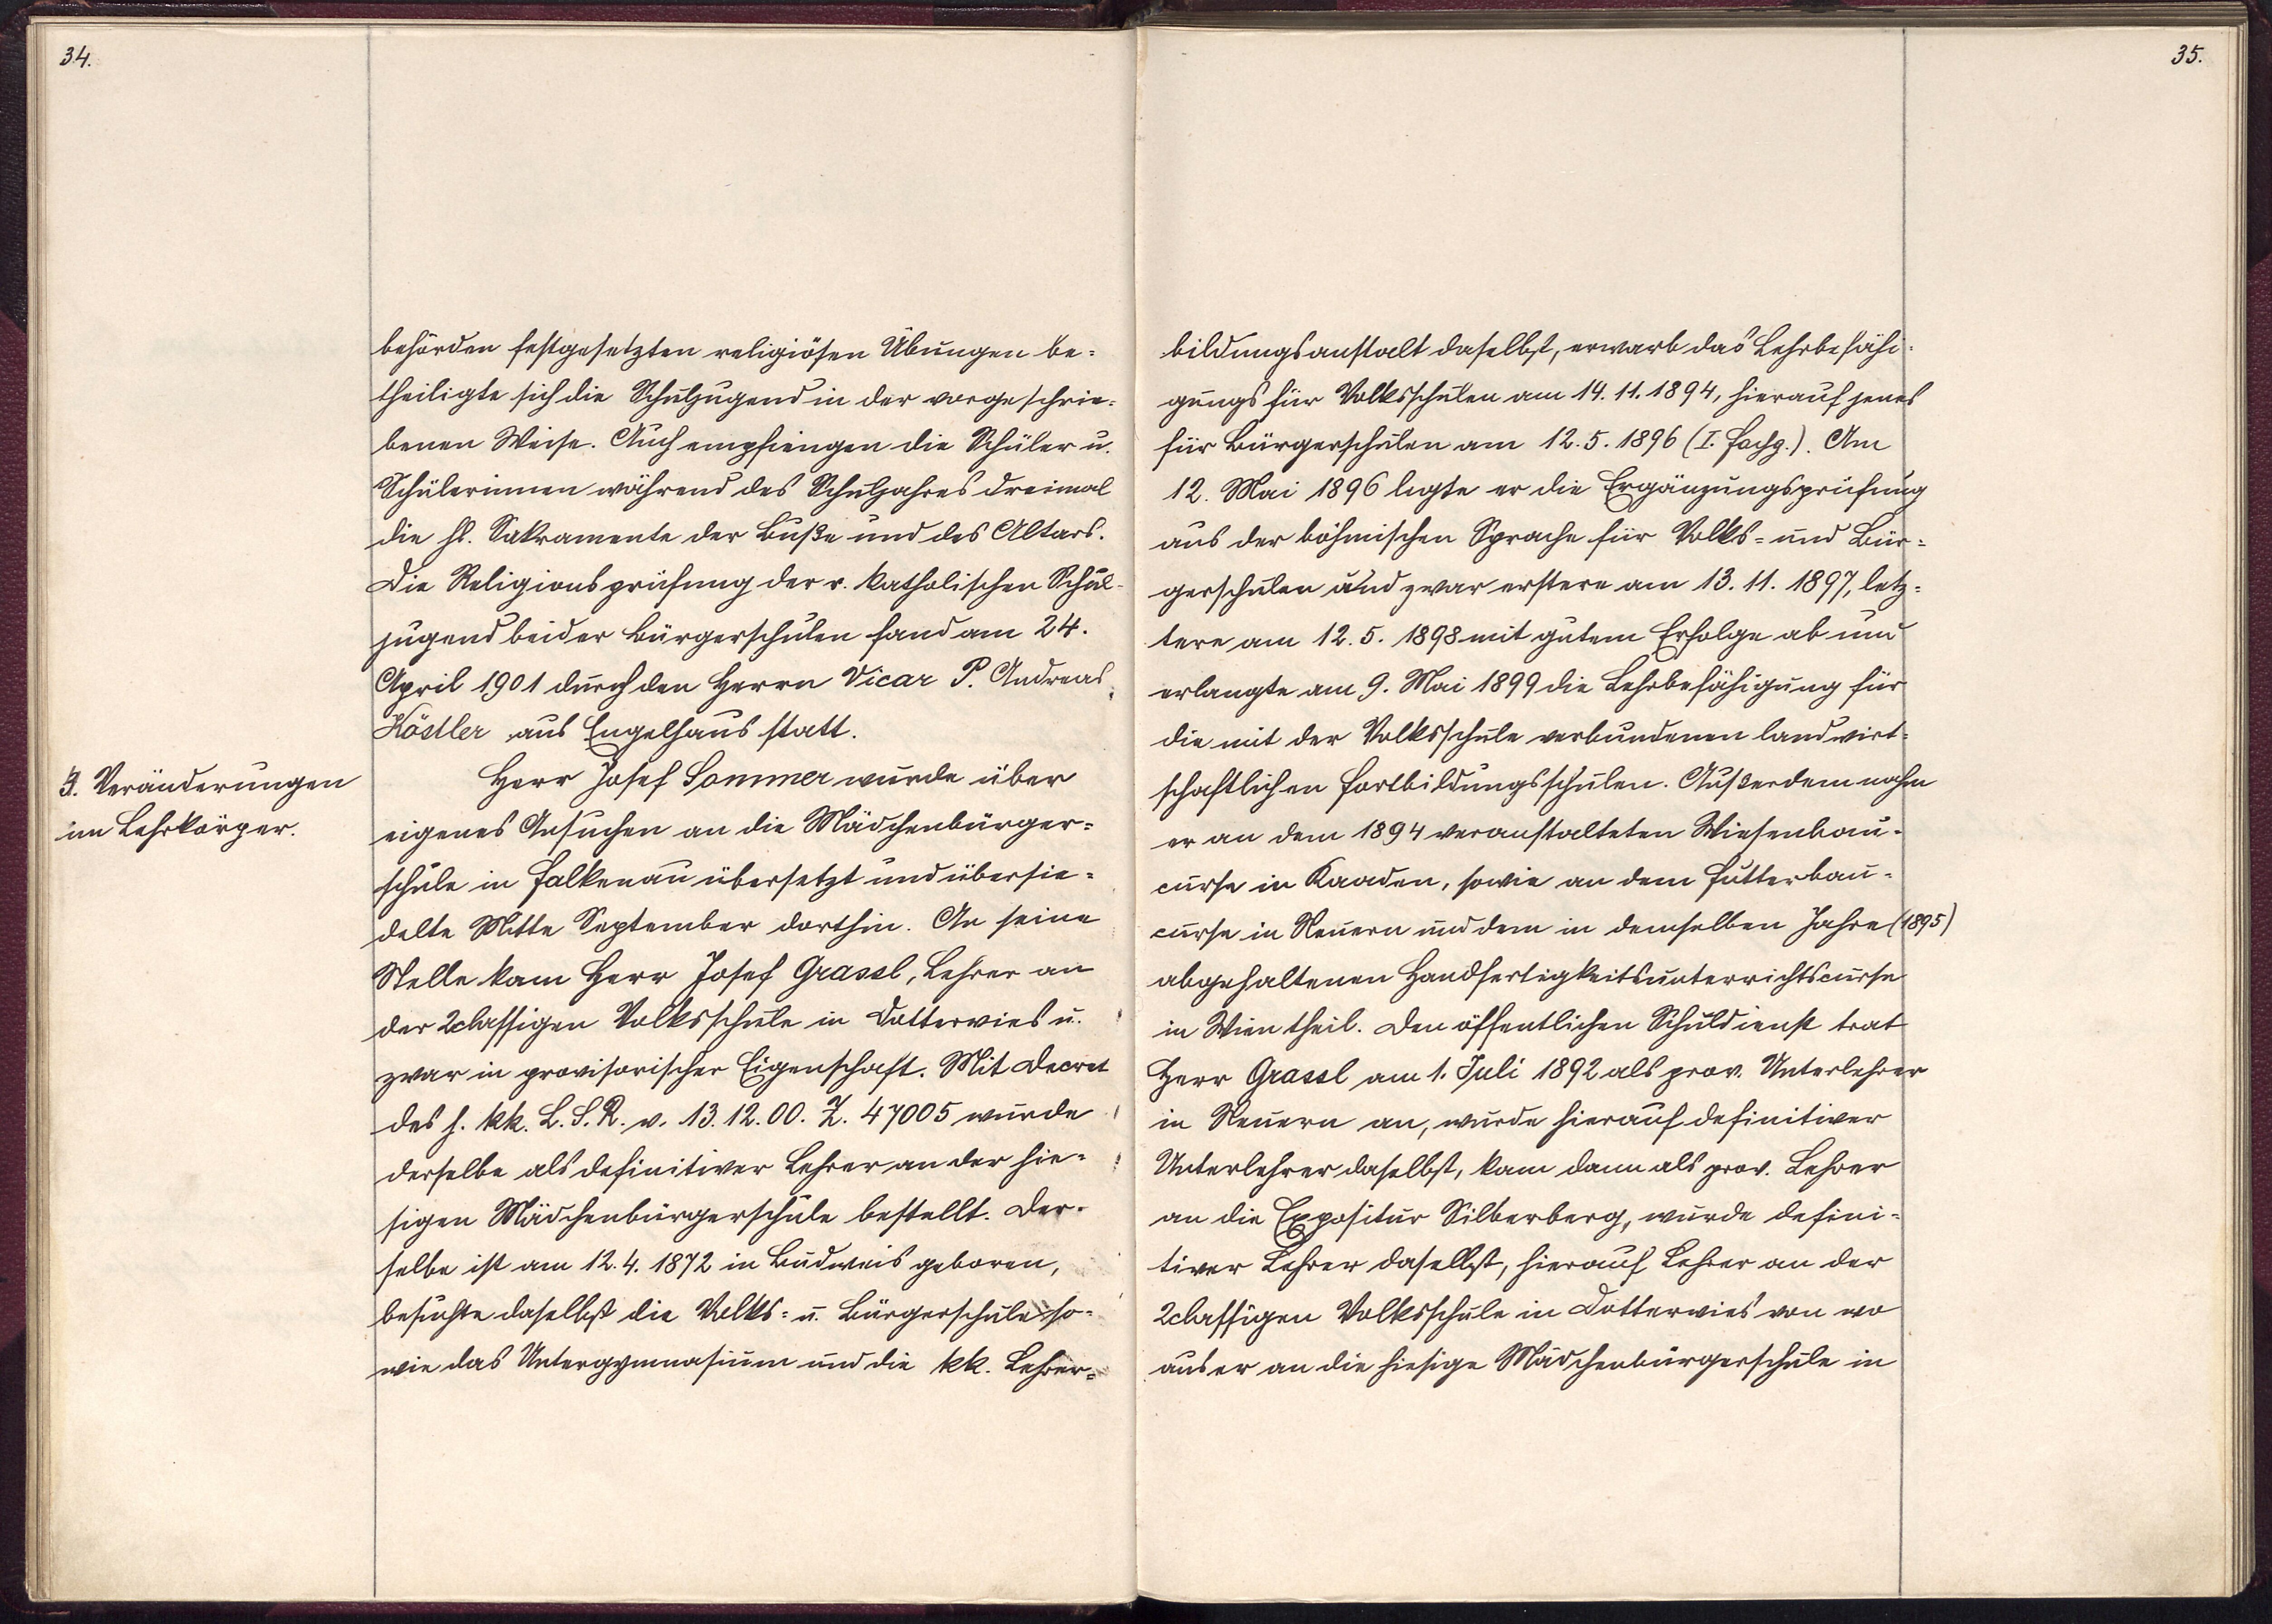 34.
behörden festgesetzten religiösen Übungen be-
theiligte sich die Schuljugend in der vorgeschrie-
benen Weise. Auch empfiengen die Schüler u.
Schülerinnen während des Schuljahres dreimal
die hl. Sakramente der Buße und des Altars.
Die Religionsprüfung der r. katholischen Schul-
jugend beider Bürgerschulen fand am 24.
April 1901 durch den Herrn Vicar P. Andreas
Köstler aus Engelhaus statt.
3. Veränderungen
im Lehrkörper.
Herr Josef Sommer wurde über
eigenes Ansuchen an die Mädchenbürger-
schule in Falkenau übersetzt und übersie-
delte Mitte September dorthin. An seine
Stelle kam Herr Josef Grassl, Lehrer an
der 2classigen Volksschule in Dotterwies u.
zwar in provisorischer Eigenschaft. Mit Decret
des h. kk. L. S. R. v. 13.12.00. Z. 47005 wurde
derselbe als definitiver Lehrer an der hie-
sigen Mädchenbürgerschule bestellt. Der-
selbe ist am 12.4.1872 in Budweis geboren,
besuchte daselbst die Volks- u. Bürgerschule so-
wie das Untergymnasium und die kk. Lehrer-
35.
bildungsanstalt daselbst, erwarb das Lehrbefähi-
gungs für Volksschulen am 14.11.1894, hierauf jenes
für Bürgerschulen am 12.5.1896 (I. Fachg.). Am
12. Mai 1896 legte er die Ergänzungsprüfung
aus der böhmischen Sprache für Volks- und Bür-
gerschulen und zwar erstere am 13.11.1897, letz-
tere am 12.5.1898 mit gutem Erfolge ab und
erlangte am 9. Mai 1899 die Lehrbefähigung für
die mit der Volksschule verbundenen landwirt-
schaftlichen Fortbildungsschulen. Außerdem nahm
er an dem 1894 veranstalteten Wiesenbau-
curse in Kaaden, sowie an dem Futterbau-
curse in Neuern und dem in demselben Jahre (1895)
abgehaltenen Handfertigkeitsunterrichtscurse
in Wien theil. Den öffentlichen Schuldienst trat
Herr Grassl am 1. Juli 1892 als prov. Unterlehrer
in Neuern an, wurde hierauf definitiver
Unterlehrer daselbst, kam dann als prov. Lehrer
an die Expositur Silberberg, wurde defini-
tiver Lehrer daselbst, hierauf Lehrer an der
2classigen Volksschule in Dotterwies von wo
aus er an die hiesige Mädchenbürgerschule in